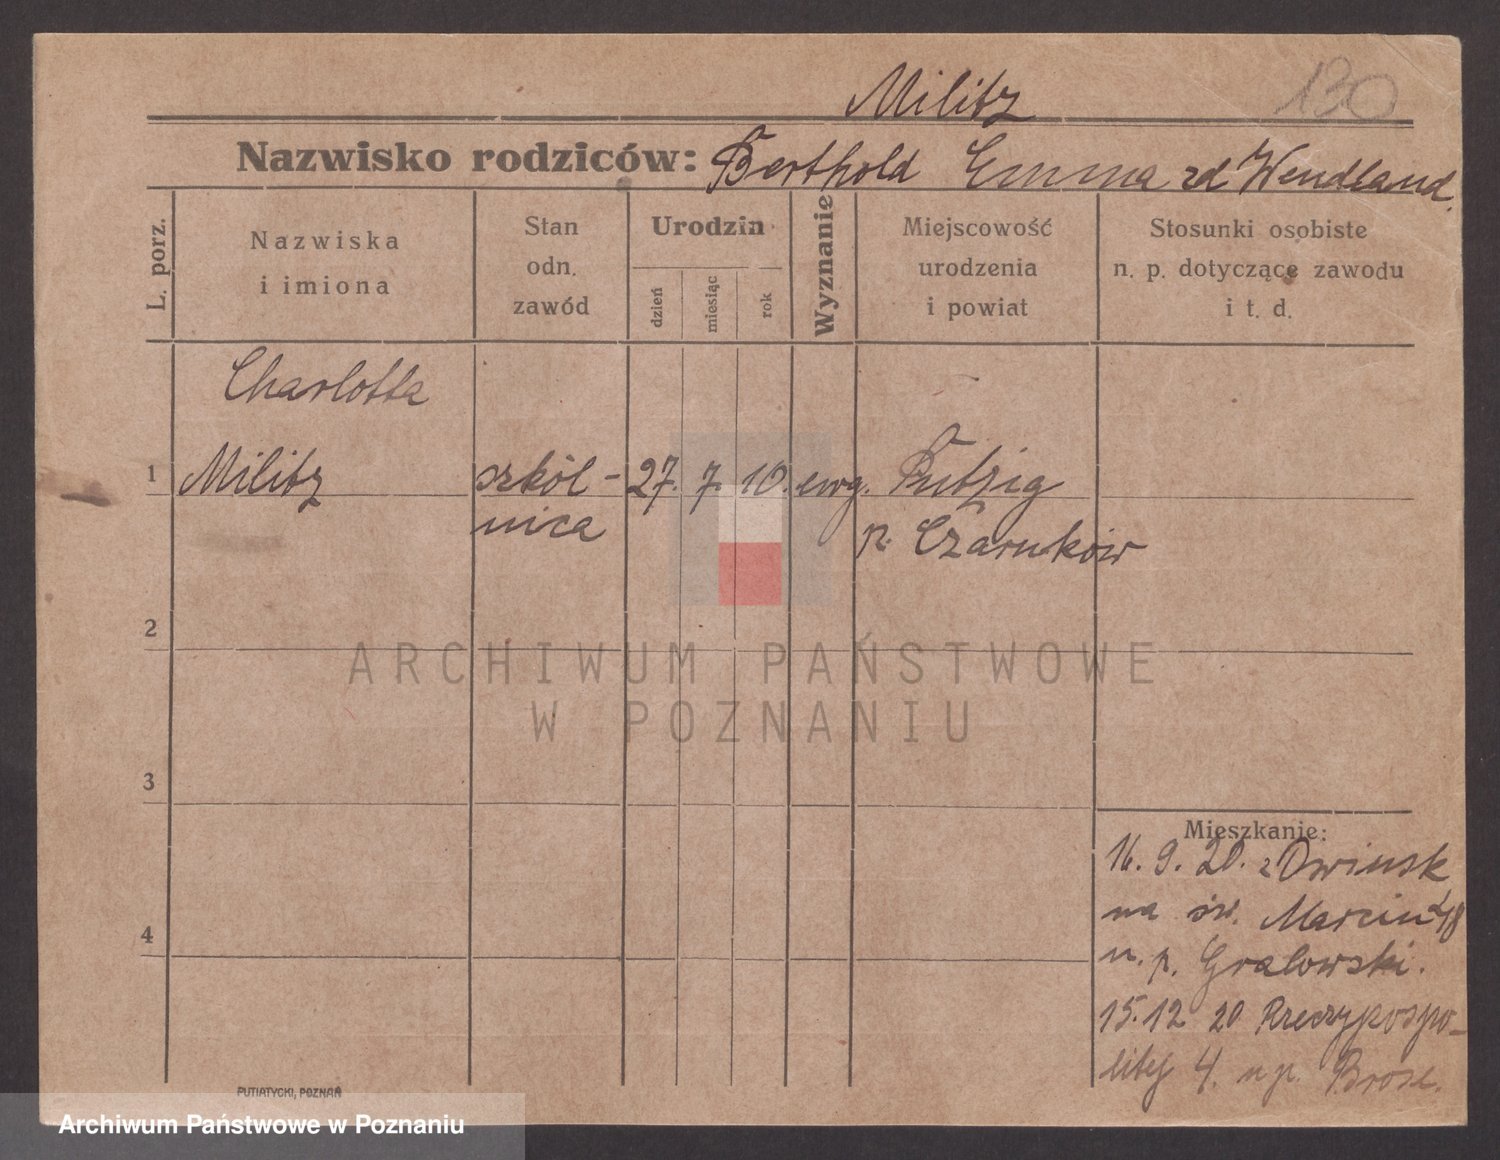 130
Militz
Nazwisko rodziców: Berthold Emma zd Wendland.
L. porz.
Nazwiska
i imiona
Stan
odn.
zawód
Urodzin
dzień
miesiąc
rok
Wyznanie
Miejscowość
urodzenia
i powiat
Stosunki osobiste
n. p. dotyczące zawodu
i t. d.
Charlotta
1 Militz szkól- 27. 7. 10. ewg. Putzig
nica p. Czarnków
2
ARCHIWUM PAŃSTWOWE
W POZNANIU
3
Mieszkanie:
16. 9. 20. z Owinsk
4 na św. Marcin 48
u. p. Gralowski.
15. 12 20 Rzeczypospo-
litej 4. u p. Brose.
PUTIATYCKI, POZNAŃ
Archiwum Państwowe w Poznaniu